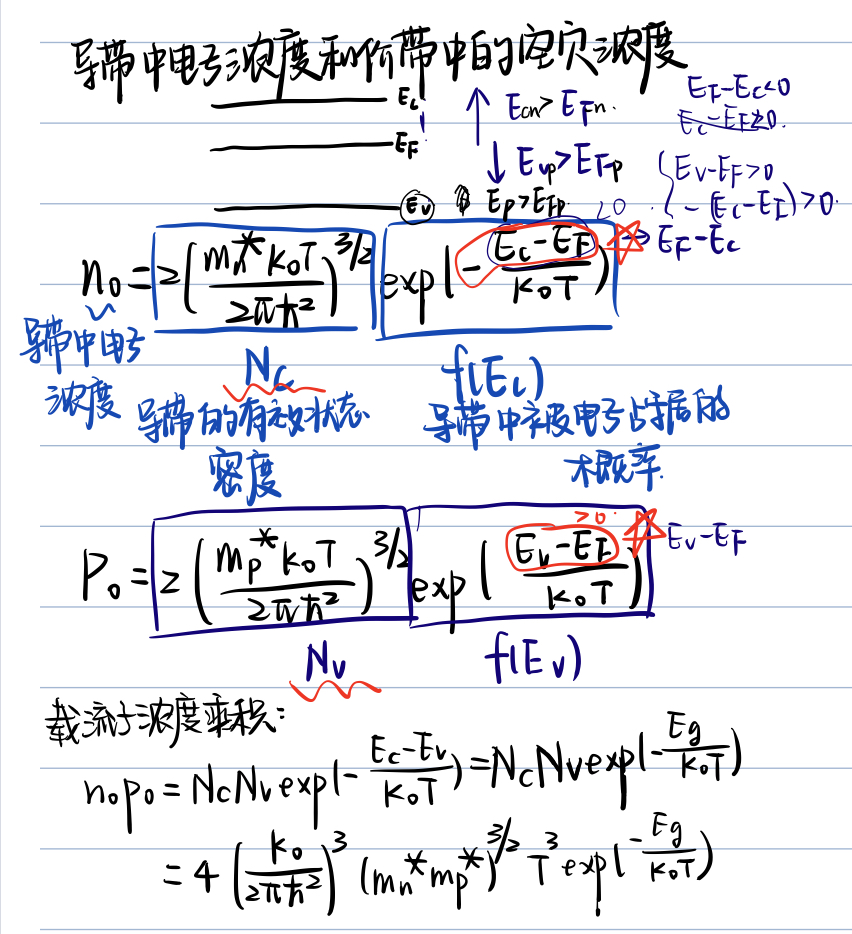 导带中电子浓度和价带中的空穴浓度
Ec
EF
Ev
Ecn>EFn.
Evp>EFp
Ep>EFp
EF-Ec<0
Ec-EF≥0.
Ev-EF>0
-(Ec-EF)>0.
<0
n₀=2(mn*k₀T/2πħ²)^3/2 exp(-Ec-EF/k₀T) → EF-Ec
导带中电子
浓度
Nc
f(Ec)
导带的有效状态
密度
导带中被电子占居的
概率.
>0.
P₀=2(mp*k₀T/2πħ²)^3/2 exp(Ev-EF/k₀T) Ev-EF
Nv
f(Ev)
载流子浓度乘积:
n₀p₀=NcNvexp(-Ec-Ev/k₀T)=NcNvexp(-Eg/k₀T)
=4(k₀/2πħ²)^3 (mn*mp*)^3/2 T^3 exp(-Eg/k₀T)